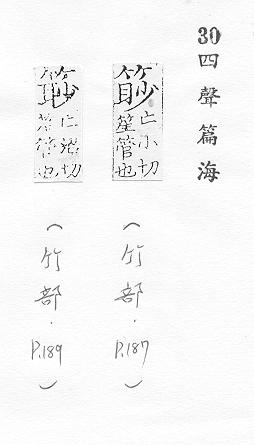 30四聲篇海
篎 亡小切
笙管也
(竹部.P.187)
亡沼切
管也
(竹部.P.189)